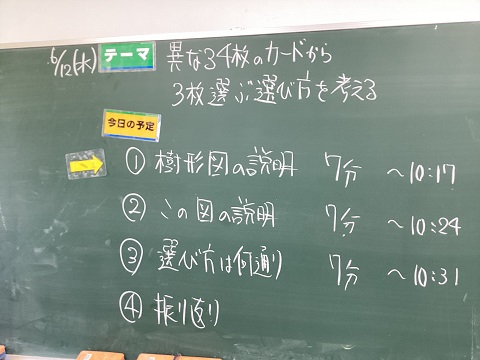 6/12(水) テーマ 異なる4枚のカードから
3枚選ぶ選び方を考える
今日の予定
① 樹形図の説明 7分 〜10:17
② この図の説明 7分 〜10:24
③ 選び方は何通り 7分 〜10:31
④ 振り返り